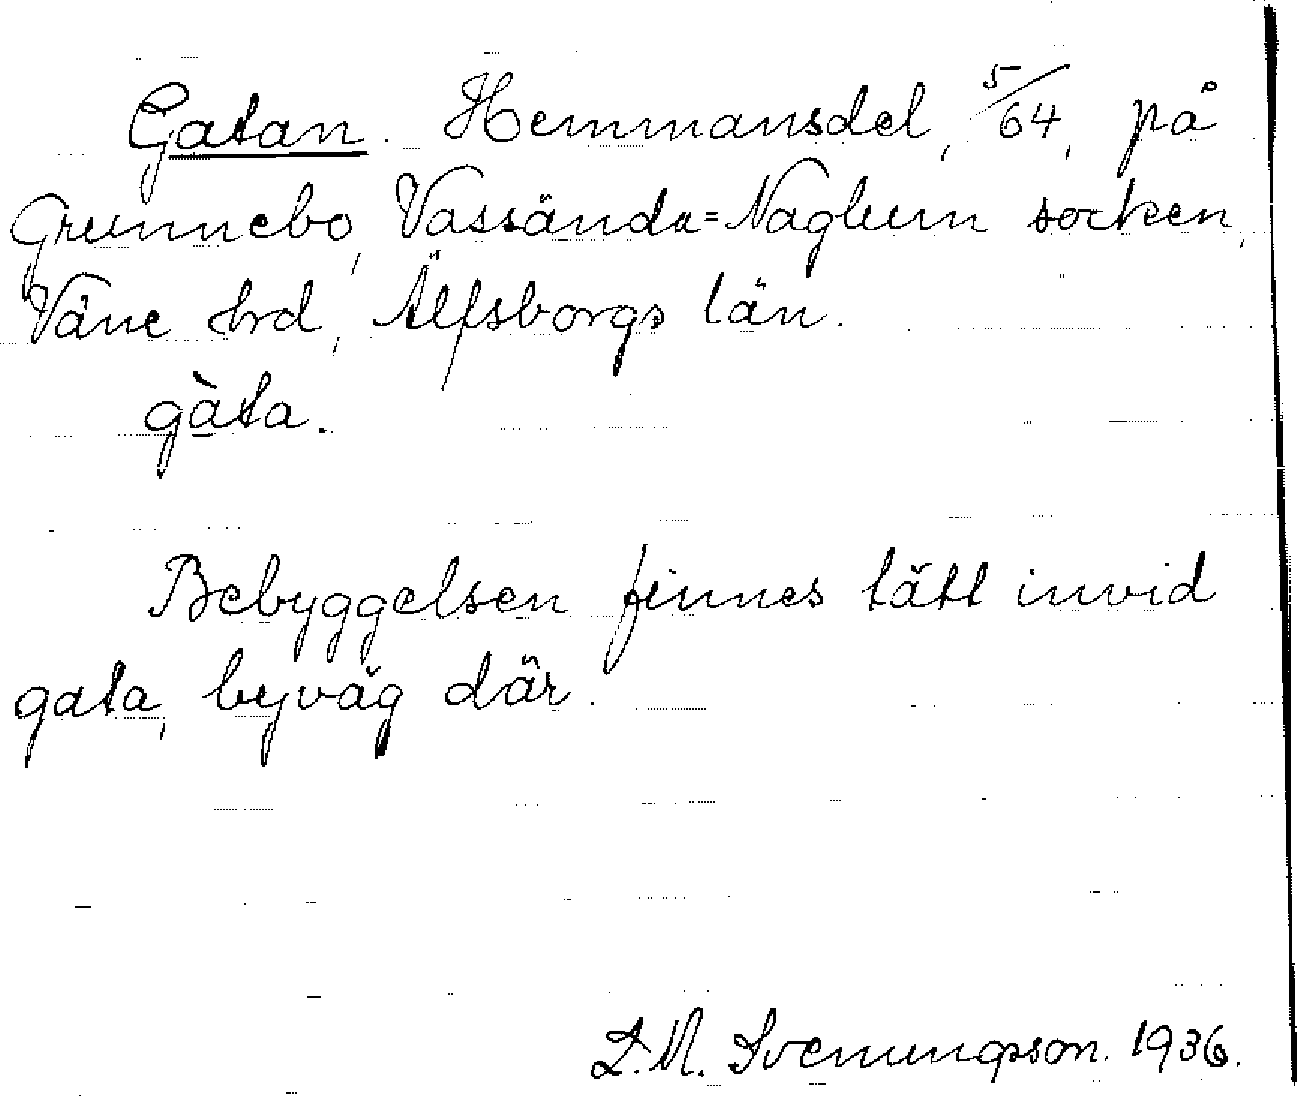 Gatan. Hemmansdel, 5/64, på
Grunnebo, Vassända=Naglum socken,
Väne hrd, Älfsborgs län.
gàta.
Bebyggelsen finnes tätt invid
gata, byväg där.
D.M. Svenungsson. 1936.